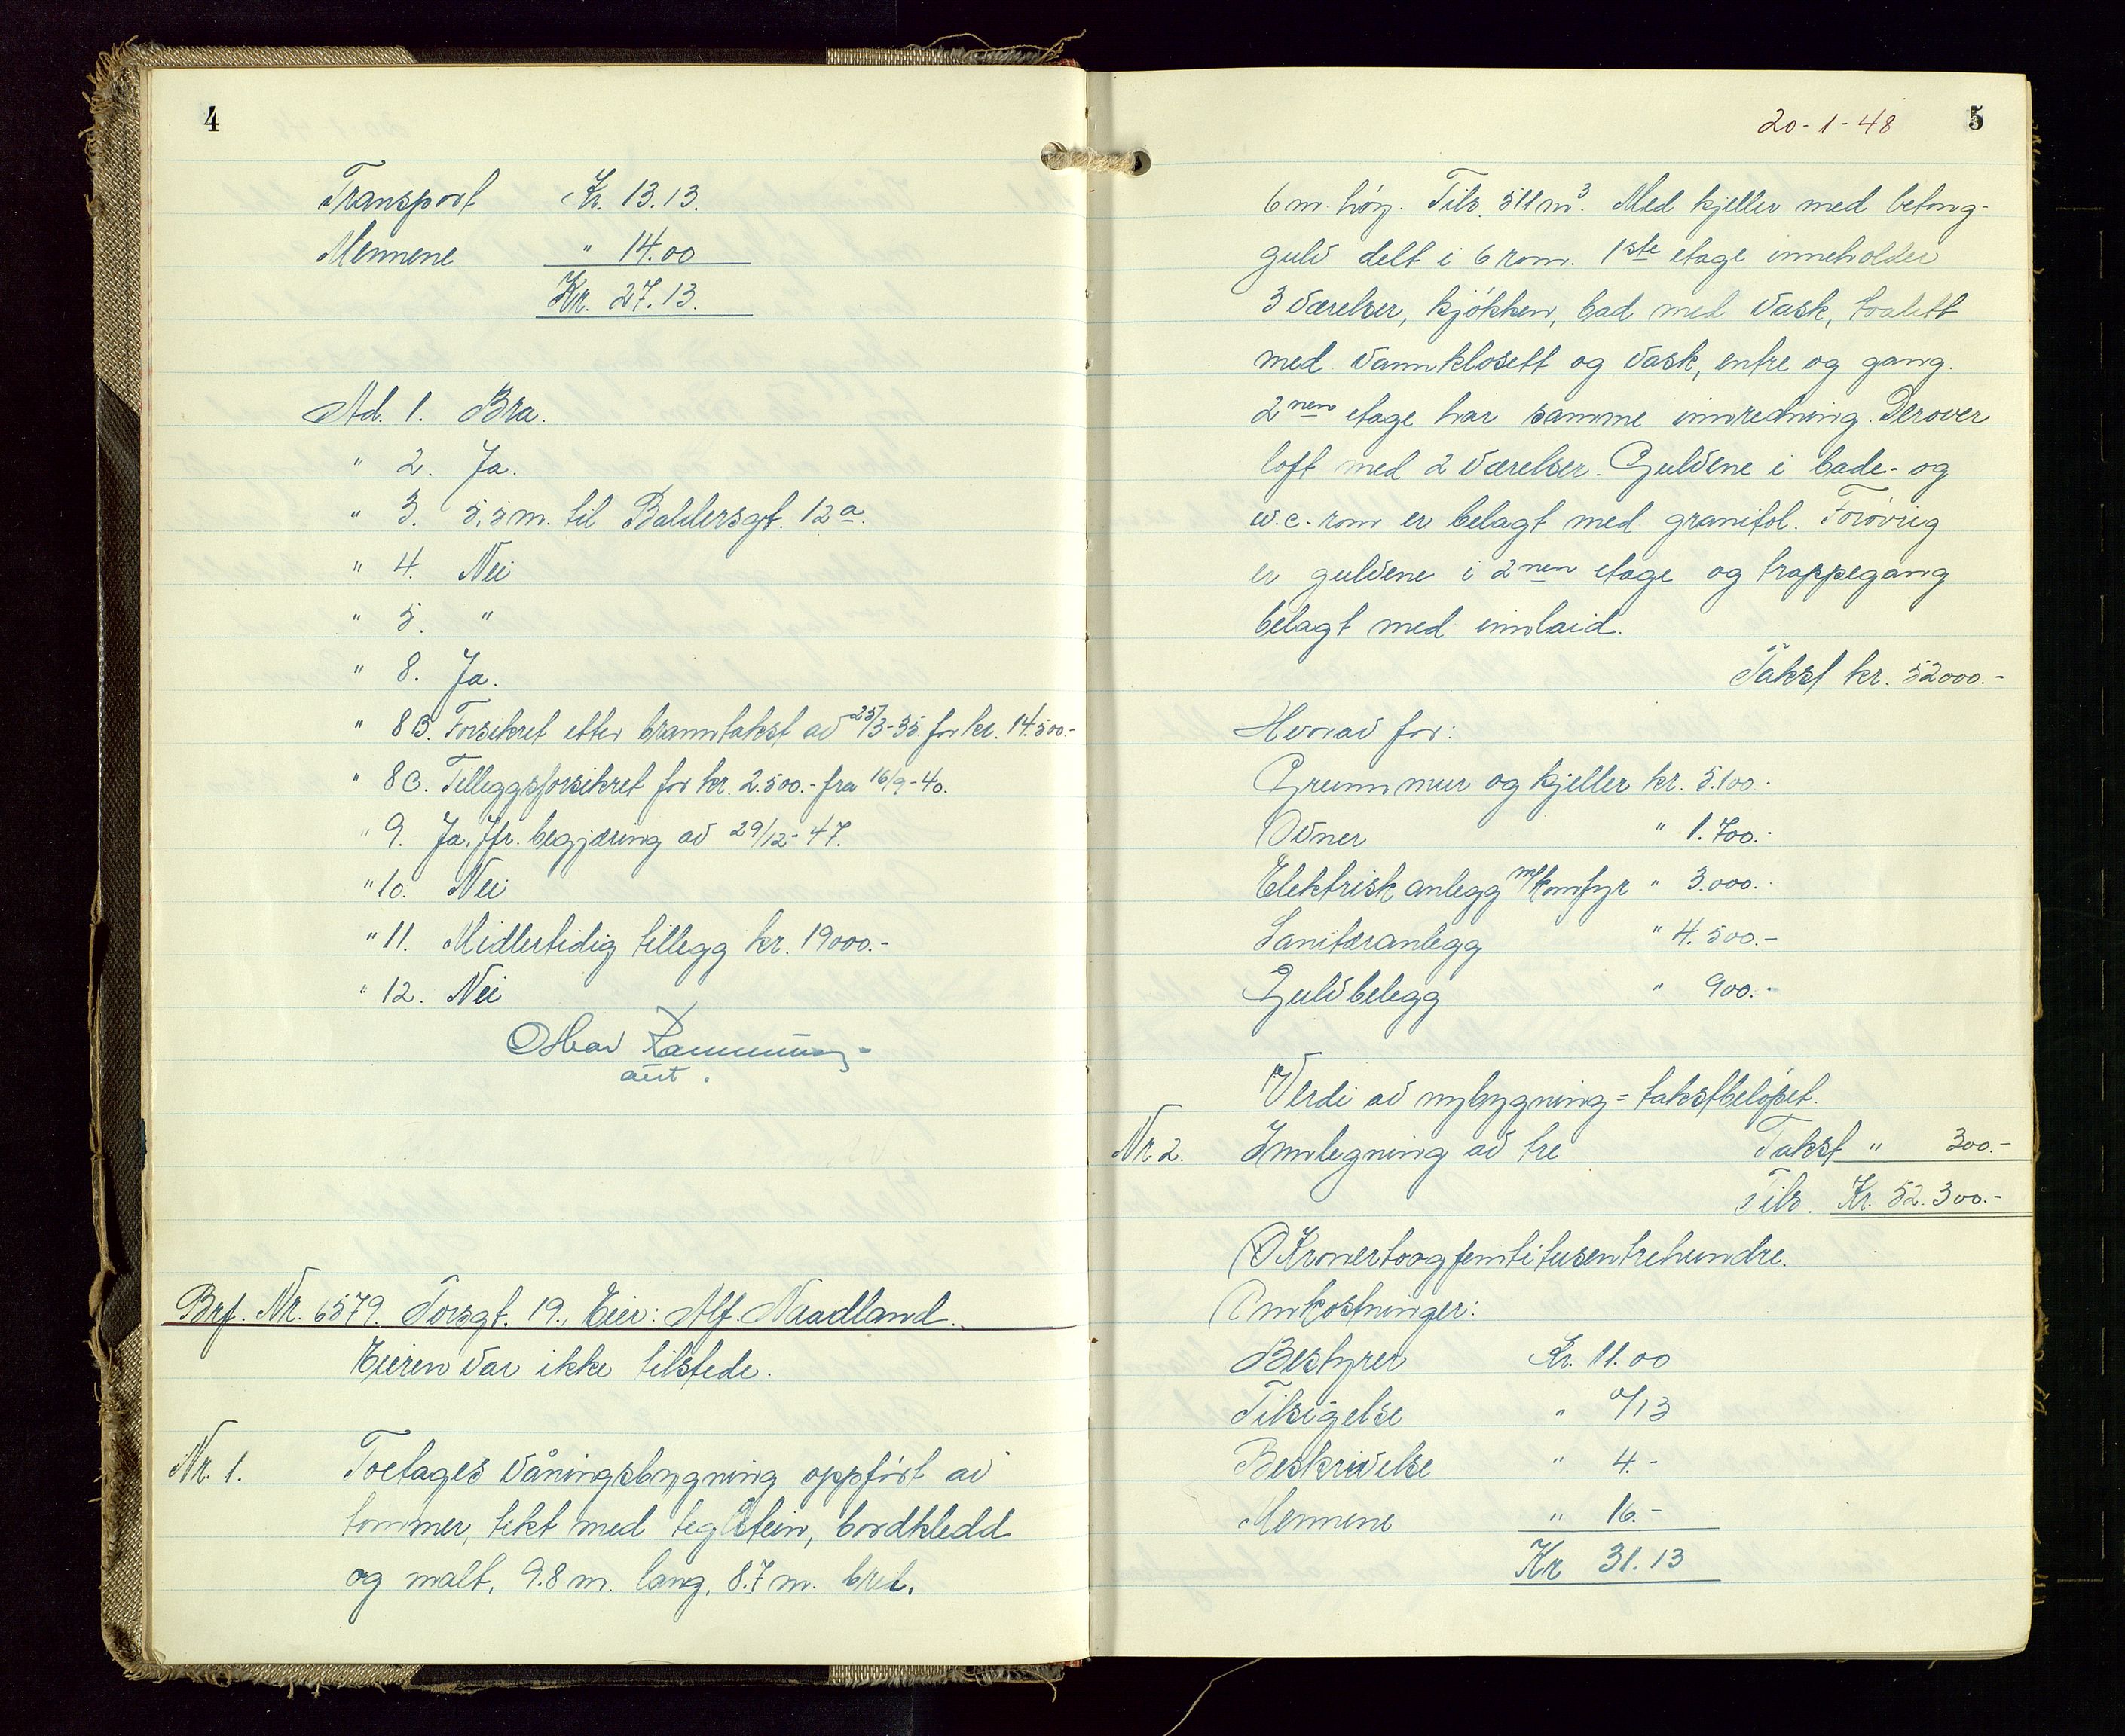 4
Transport Kr. 13.13.
Mennene " 14.00
Kr. 27.13.
Ad. 1. Bra.
" 2. Ja.
" 3. 5,5 m. til Baldersgt. 12a.
" 4. Nei
" 5. "
" 8. Ja.
" 8B. Forsikret etter branntakst av 25/3-35 for kr. 14.500.-
" 8C. Tilleggsforsikret for kr. 2.500.- fra 16/9-40.
" 9. Ja. Jfr. begjæring av 29/12-47.
" 10. Nei
" 11. Midlertidig tillegg kr. 19000.-
" 12. Nei
Brf. Nr. 6579. Torsgt. 19., Eier: Alf. Naadland.
Eieren var ikke tilstede.
Nr. 1. Toetages våningsbygning oppført av
tømmer, tekt med teglstein, bordkledd
og malt, 9.8 m. lang, 8.7 m. bred,
20-1-48 5
6 m. høy. Tils. 511 m³. Med kjeller med betong-
gulv delt i 6 rom. 1ste etage inneholder
3 værelser, kjøkken, bad med vask, toalett
med vannklosett og vask, entre og gang.
2nen etage har samme innredning. Derover
loft med 2 værelser. Gulvene i bade- og
w.c.-rom er belagt med granitol. Forøvrig
er gulvene i 2nen etage og trappegang
belagt med innlaid.
Takst kr. 52000.-
Hvorav for:
Grunnmur og kjeller kr. 5.100.-
Ovner " 1.700.-
Elektrisk anlegg m/komfyr " 3.000.-
Sanitæranlegg " 4.500.-
Gulvbelegg " 900.-
Verdi av nybygning = takstbeløpet.
Nr. 2. Innhegning av tre Takst " 300.-
Tils. Kr. 52.300.-
Kronertoogfemtitusentrehundre.
Omkostninger:
Bestyrer Kr. 11.00
Tilsigelse " 0/13
Beskrivelse " 4.-
Mennene " 16.-
Kr 31.13